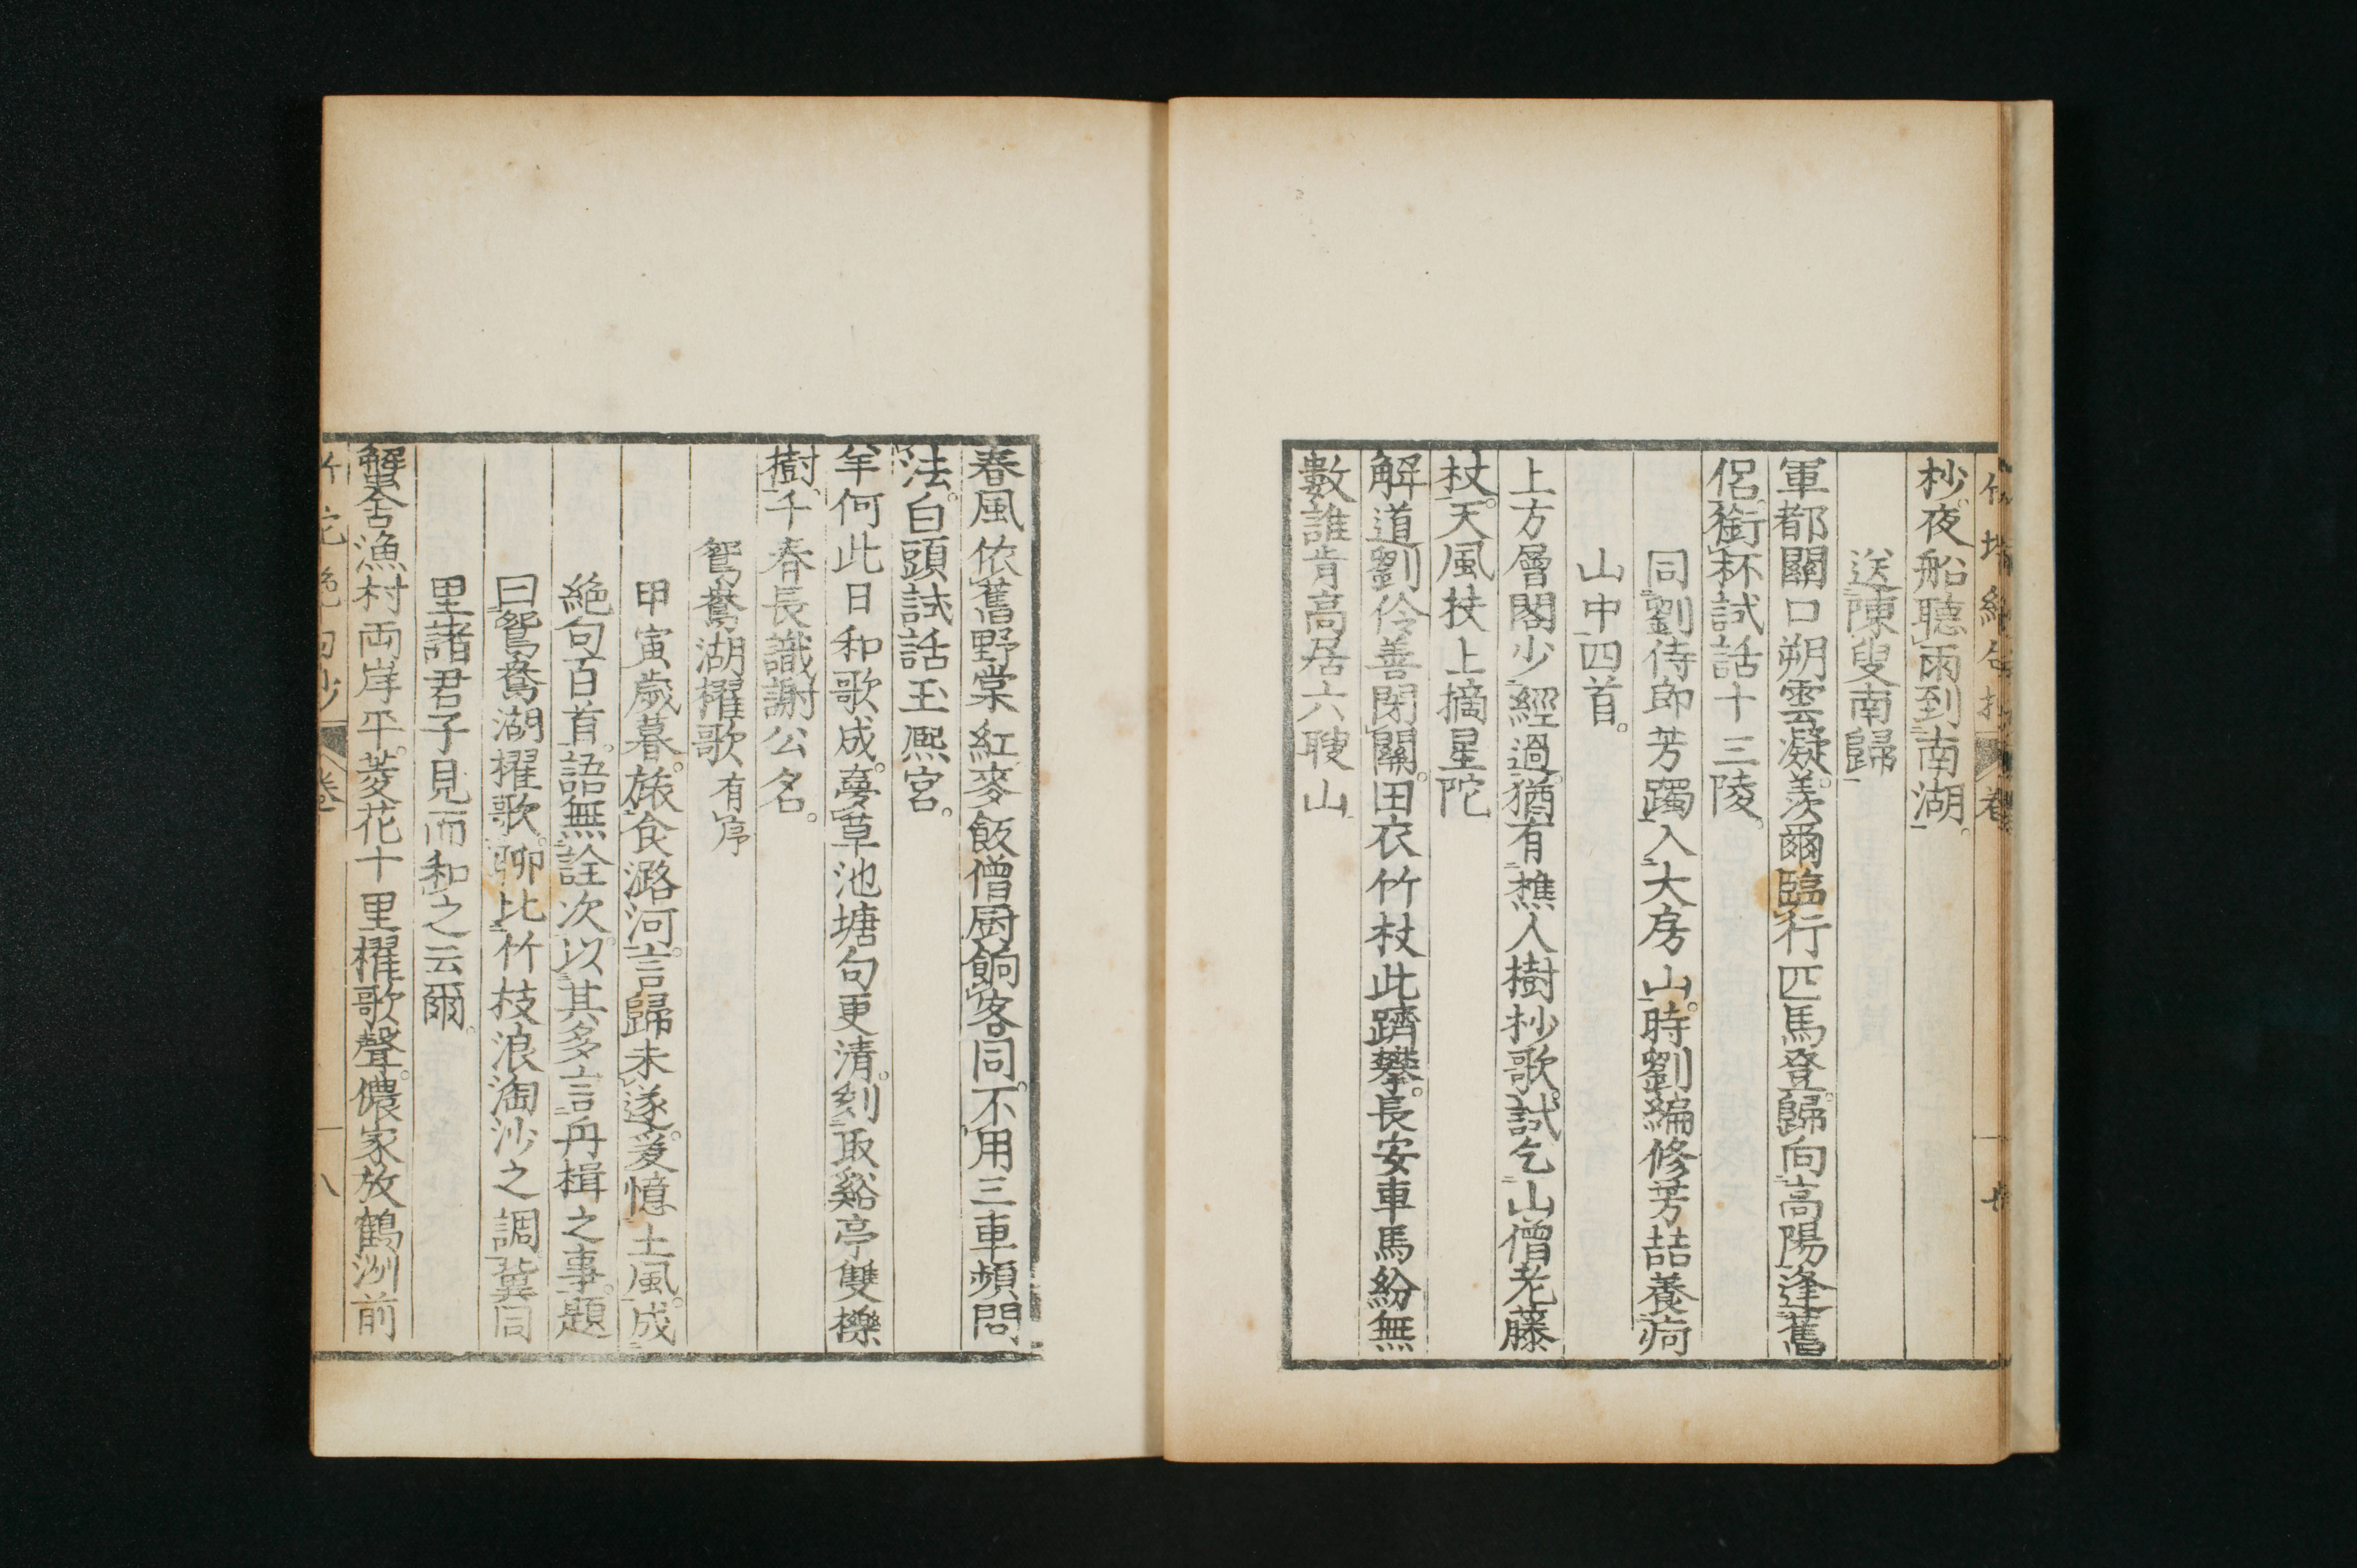 杪。夜船聽雨到南湖。
送陳叟南歸
軍都關口朔雲凝。羨爾臨行匹馬登。歸向高陽逢舊
侶。銜杯試話十三陵。
同劉侍郎芳躅入大房山。時劉編修芳喆養痾
山中四首。
上方層閣少經過。猶有樵人樹杪歌。試乞山僧老藤
杖。天風扶上摘星陀
解道劉伶善閉關。田衣竹杖此躋攀。長安車馬紛無
數誰肯高居六聘山
春風依舊野棠紅麥飯僧厨餉客同。不用三車頻問
法。白頭試話玉熙宮。
年何此日和歌成。夢草池塘句更清。刻取谿亭雙櫟
樹。千春長識謝公名。
鴛鴦湖櫂歌有序
甲寅歲暮。旅食潞河。言歸未遂。爰憶土風。成
絶句百首。語無詮次。以其多言舟楫之事。題
曰鴛鴦湖櫂歌。聊比竹枝浪淘沙之調冀同
里諸君子見而和之云爾。
蟹舍漁村両岸平。菱花十里櫂歌聲。儂家放鶴洲前
竹垞絶句抄 卷 八